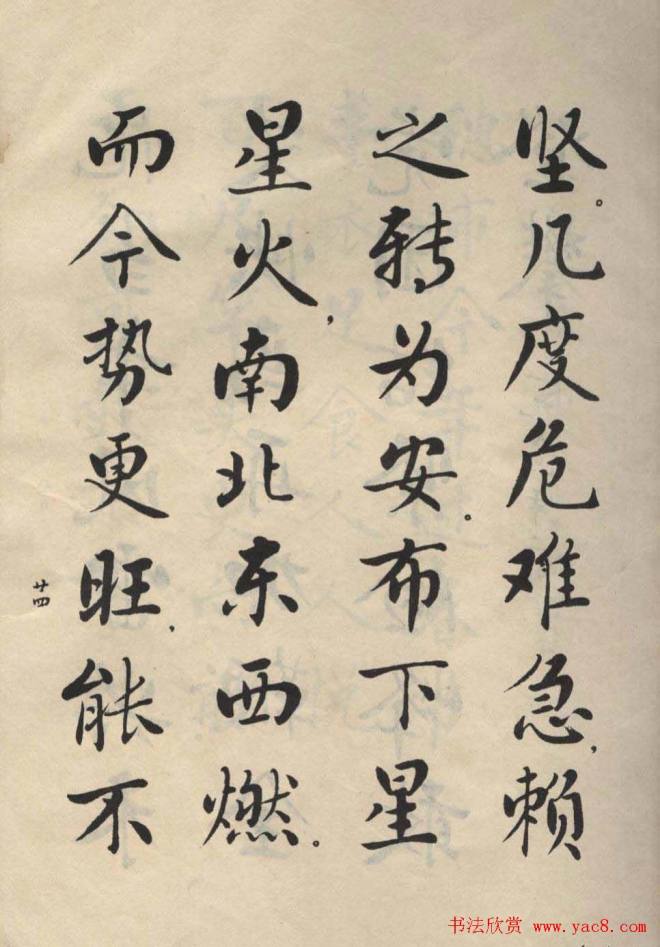 坚。几度危难急，赖
之转为安。布下星
星火，南北东西燃。
而今势更旺，能不
廿四
书法欣赏 www.yac8.com